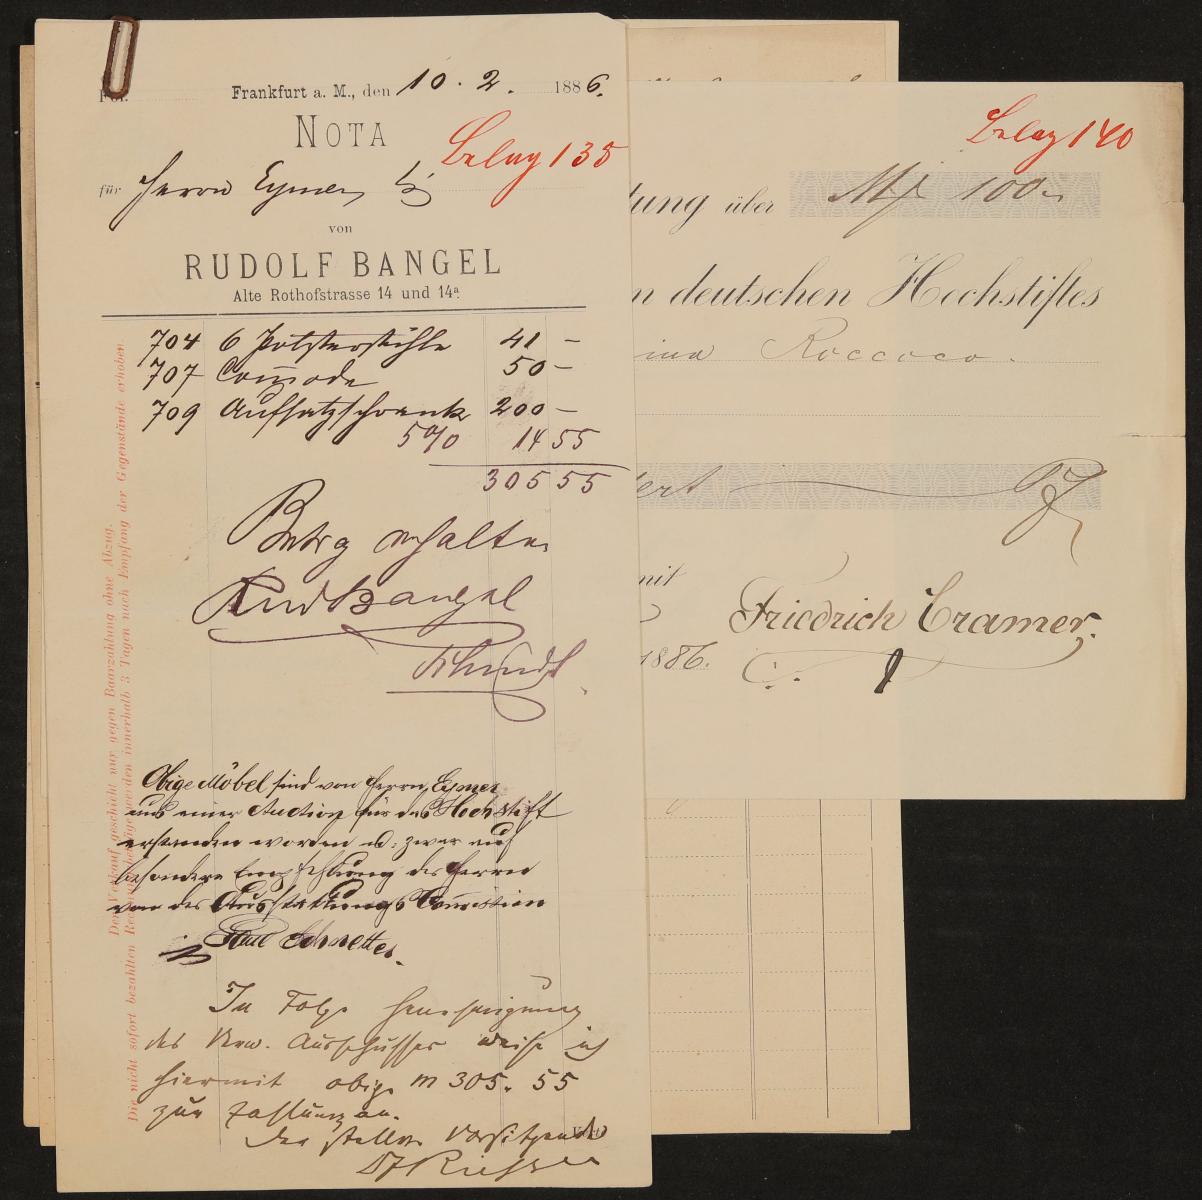 Fol.
Frankfurt a. M., den 10. 2. 1886.
NOTA
Beleg 135
für Herrn Eymer
von
RUDOLF BANGEL
Alte Rothofstrasse 14 und 14a.
704 6 Polsterstühle 41 –
707 Com̄ode 50 –
709 Aufsatzschrank 200 –
5% 14 55
305 55
Betrag erhalten
Rud Bangel
Obige Möbel sind von Herrn Eymer
aus einer Auction für das Hochstift
erstanden worden u. zwar auf
besondere Empfehlung der Herren
von der Ausstattungs Com̄ission
Paul Schnettes.
In Folge Genehmigung
des Verw. Ausschusses weise ich
hiermit obige M 305. 55
zur Zahlung an.
Der stellv. Vorsitzende
Der Verkauf geschieht nur gegen Baarzahlung ohne Abzug.
Die nicht sofort bezahlten Rechnungsbeträge werden innerhalb 3 Tagen nach Empfang der Gegenstände erhoben.
Beleg 140
tung über Mk 100.–
n deutschen Hochstiftes
Roccoco.
ert
mit
Friedrich Cramer.
1886.